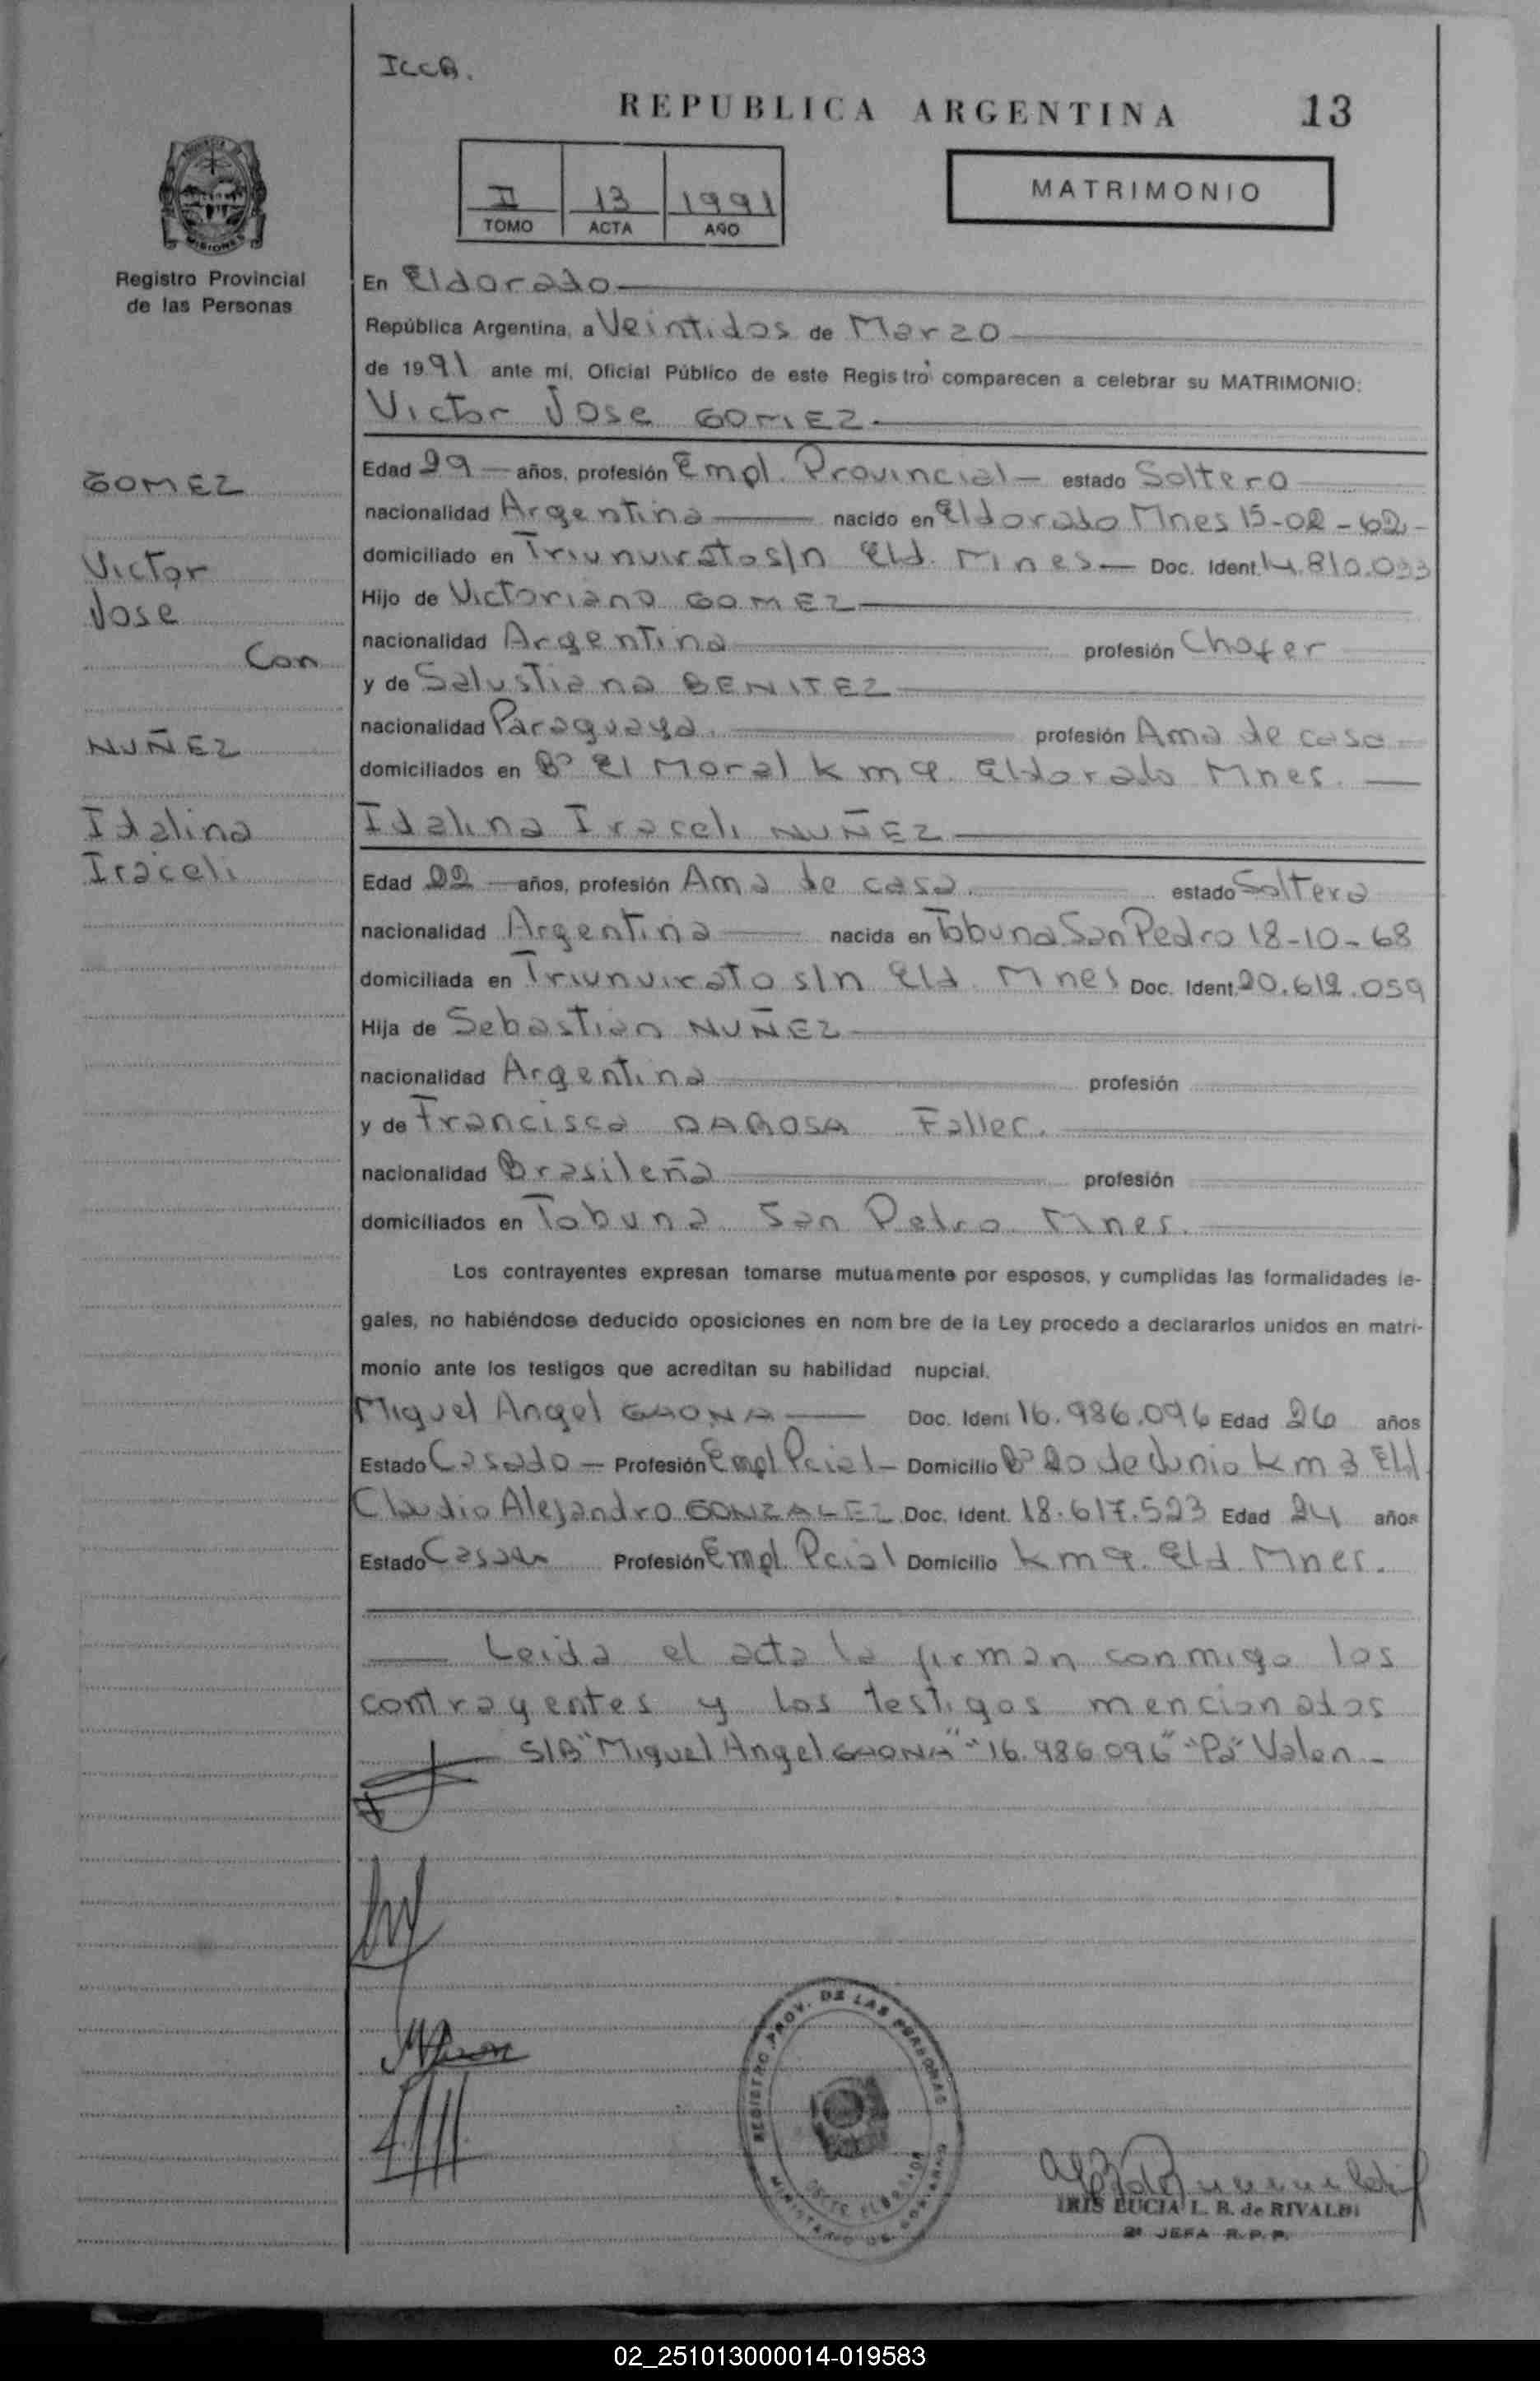 ICCA.
REPUBLICA ARGENTINA 13
II 13 1991
TOMO ACTA AÑO
MATRIMONIO
MISIONES
Registro Provincial
de las Personas
En Eldorado
República Argentina, a Veintidos de Marzo
de 1991 ante mí, Oficial Público de este Registro comparecen a celebrar su MATRIMONIO:
Victor Jose GOMEZ
GOMEZ
Victor
Jose
Con
NUÑEZ
Idalina
Iraceli
Edad 29 años, profesión Empl. Provincial estado Soltero
nacionalidad Argentina nacido en Eldorado Mnes 15-02-62
domiciliado en Triunvirato s/n Eld. Mnes Doc. Ident. 14.810.033
Hijo de Victoriano GOMEZ
nacionalidad Argentina profesión Chofer
y de Salustiana BENITEZ
nacionalidad Paraguaya. profesión Ama de casa
domiciliados en Bº El Moral km 9. Eldorado Mnes.
Idalina Iraceli NUÑEZ
Edad 22 años, profesión Ama de casa. estado Soltera
nacionalidad Argentina nacida en Tobuna San Pedro 18-10-68
domiciliada en Triunvirato s/n Eld. Mnes Doc. Ident. 20.612.059
Hija de Sebastian NUÑEZ
nacionalidad Argentina profesión
y de Francisca DAROSA Faller.
nacionalidad Brasileña profesión
domiciliados en Tobuna San Pedro Mnes.
Los contrayentes expresan tomarse mutuamente por esposos, y cumplidas las formalidades le-
gales, no habiéndose deducido oposiciones en nom bre de la Ley procedo a declararlos unidos en matri-
monio ante los testigos que acreditan su habilidad nupcial.
Miguel Angel GAONA Doc. Ident 16.986.096 Edad 26 años
Estado Casado Profesión Empl Pcial Domicilio Bº 20 de Junio km 3 Eld
Claudio Alejandro GONZALEZ Doc. Ident. 18.617.523 Edad 24 años
Estado Casado Profesión Empl. Pcial Domicilio km 9. Eld. Mnes.
Leida el acta la firman conmigo los
contrayentes y los testigos mencionados
S/B "Miguel Angel GAONA" "16.986.096" "Pa" Valen
REGISTRO PROV. DE LAS PERSONAS
MINISTERIO DE GOBIERNO
IRIS LUCIA L. B. de RIVALDI
2ª JEFA R. P. P.
02_251013000014-019583